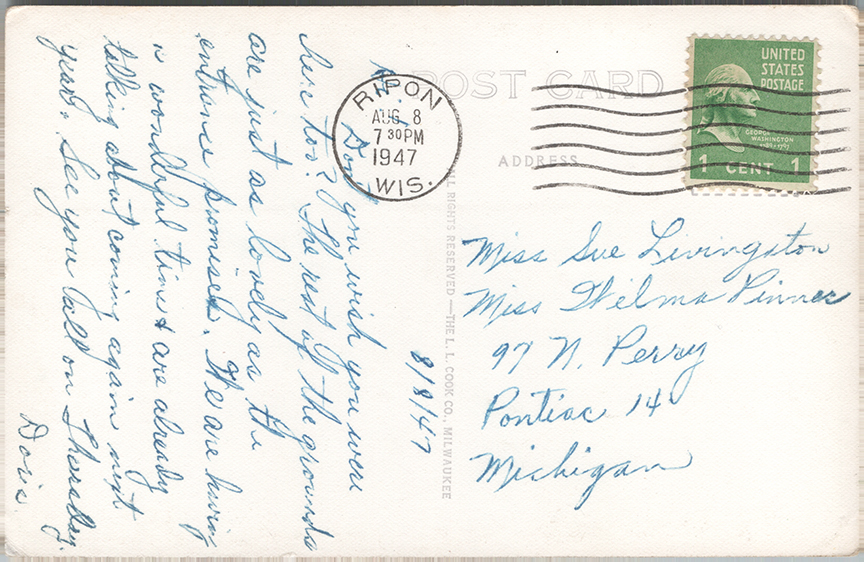 POST CARD
RIPON
AUG 8
7 30 PM
1947
WIS.
UNITED
STATES
POSTAGE
GEORGE
WASHINGTON
1 CENT 1
ADDRESS
8/8/47
Don't you wish you were
here too? The rest of the grounds
are just as lovely as the
entrance promises. We are having
a wonderful time & are already
talking about coming again next
year. See you all on Thursday.
Doris.
ALL RIGHTS RESERVED — THE L. L. COOK CO., MILWAUKEE
Miss Sue Livingston
Miss Wilma Pinner
97 N. Perry
Pontiac 14
Michigan